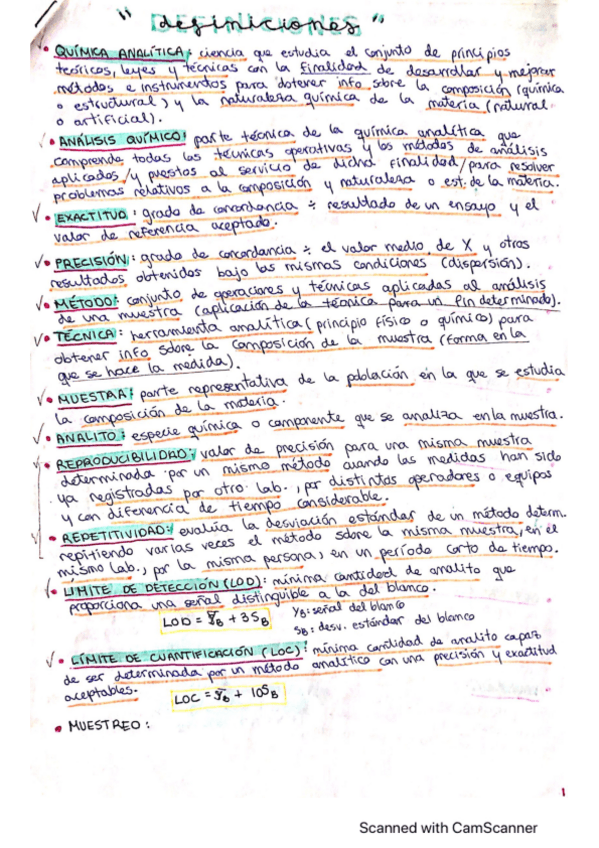 "definiciones"
• QUÍMICA ANALÍTICA: ciencia que estudia el conjunto de principios
teóricos, leyes y técnicas con la finalidad de desarrollar y mejorar
métodos e instrumentos para obtener info sobre la composición (química
o estructural) y la naturaleza química de la materia (natural
o artificial).
• ANÁLISIS QUÍMICO: parte técnica de la química analítica que
comprende todas las técnicas operativas y los métodos de análisis
aplicados y puestos al servicio de dicha finalidad/para resolver
problemas relativos a la composición y naturaleza o est. de la materia.
• EXACTITUD: grado de concordancia ÷ resultado de un ensayo y el
valor de referencia aceptado.
• PRECISIÓN: grado de concordancia ÷ el valor medio de X y otros
resultados obtenidos bajo las mismas condiciones (dispersión).
• MÉTODO: conjunto de operaciones y técnicas aplicadas al análisis
de una muestra (aplicación de la técnica para un fin determinado).
• TÉCNICA: herramienta analítica (principio físico o químico) para
obtener info sobre la composición de la muestra (forma en la
que se hace la medida).
• MUESTRA: parte representativa de la población en la que se estudia
la composición de la materia.
• ANALITO: especie química o componente que se analiza en la muestra.
• REPRODUCIBILIDAD: valor de precisión para una misma muestra
determinada por un mismo método cuando las medidas han sido
ya registradas por otro lab., por distintos operadores o equipos
y con diferencia de tiempo considerable.
• REPETITIVIDAD: evalúa la desviación estándar de un método determ.
repitiendo varias veces el método sobre la misma muestra, en el
mismo lab., por la misma persona, en un período corto de tiempo.
• LIMITE DE DETECCIÓN (LOD): mínima cantidad de analito que
proporciona una señal distinguible a la del blanco.
LOD = ȳB + 3SB
yB: señal del blanco
sB: desv. estándar del blanco
• LÍMITE DE CUANTIFICACIÓN (LOC): mínima cantidad de analito capaz
de ser determinada por un método analítico con una precisión y exactitud
aceptables.
LOC = ȳB + 10SB
• MUESTREO:
1
Scanned with CamScanner